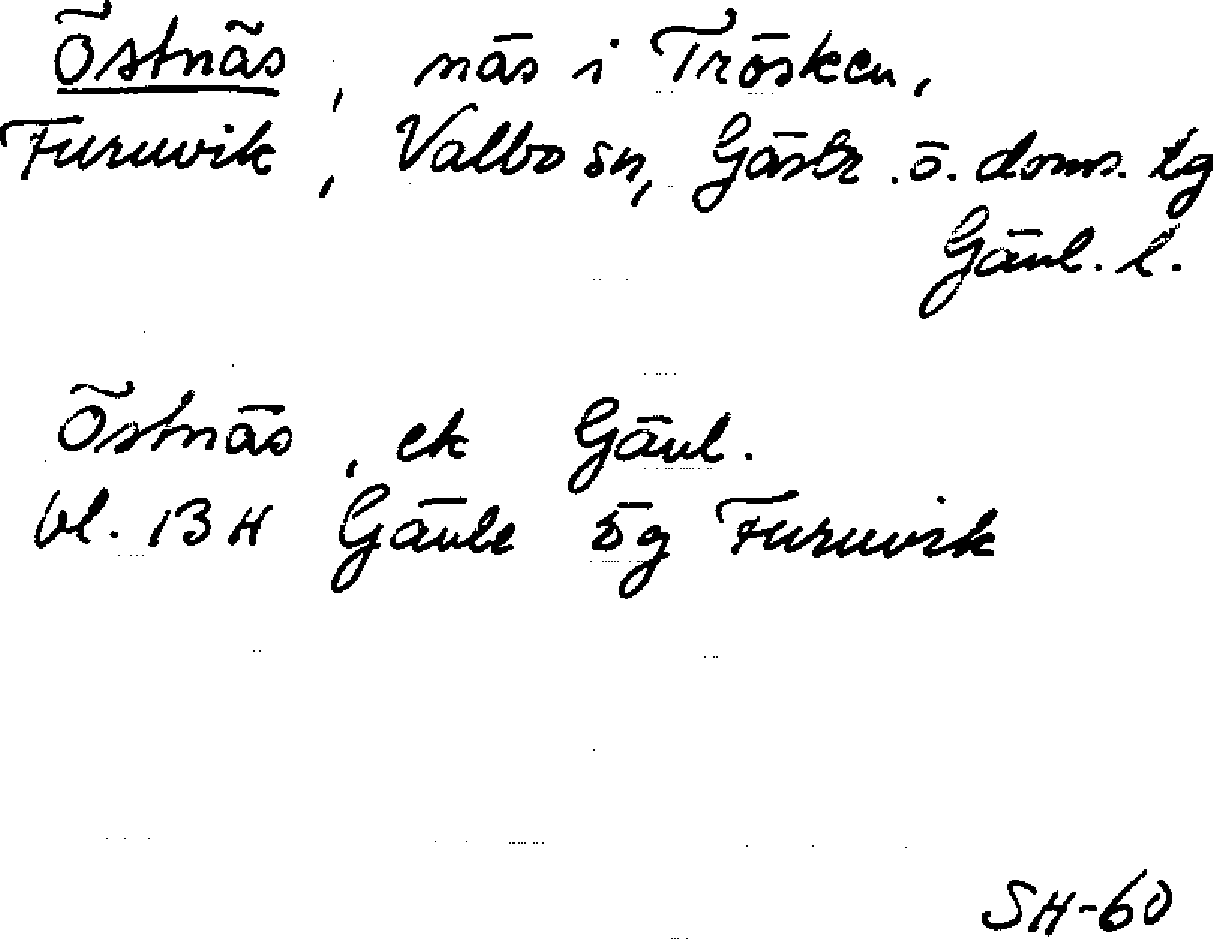 Östnäs, näs i Trösken,
Furuvik, Valbo sn, Gästr. ö. doms. tg
Gävl. l.
Östnäs, ek Gävl.
bl. 13 H Gävle 5g Furuvik
SH-60